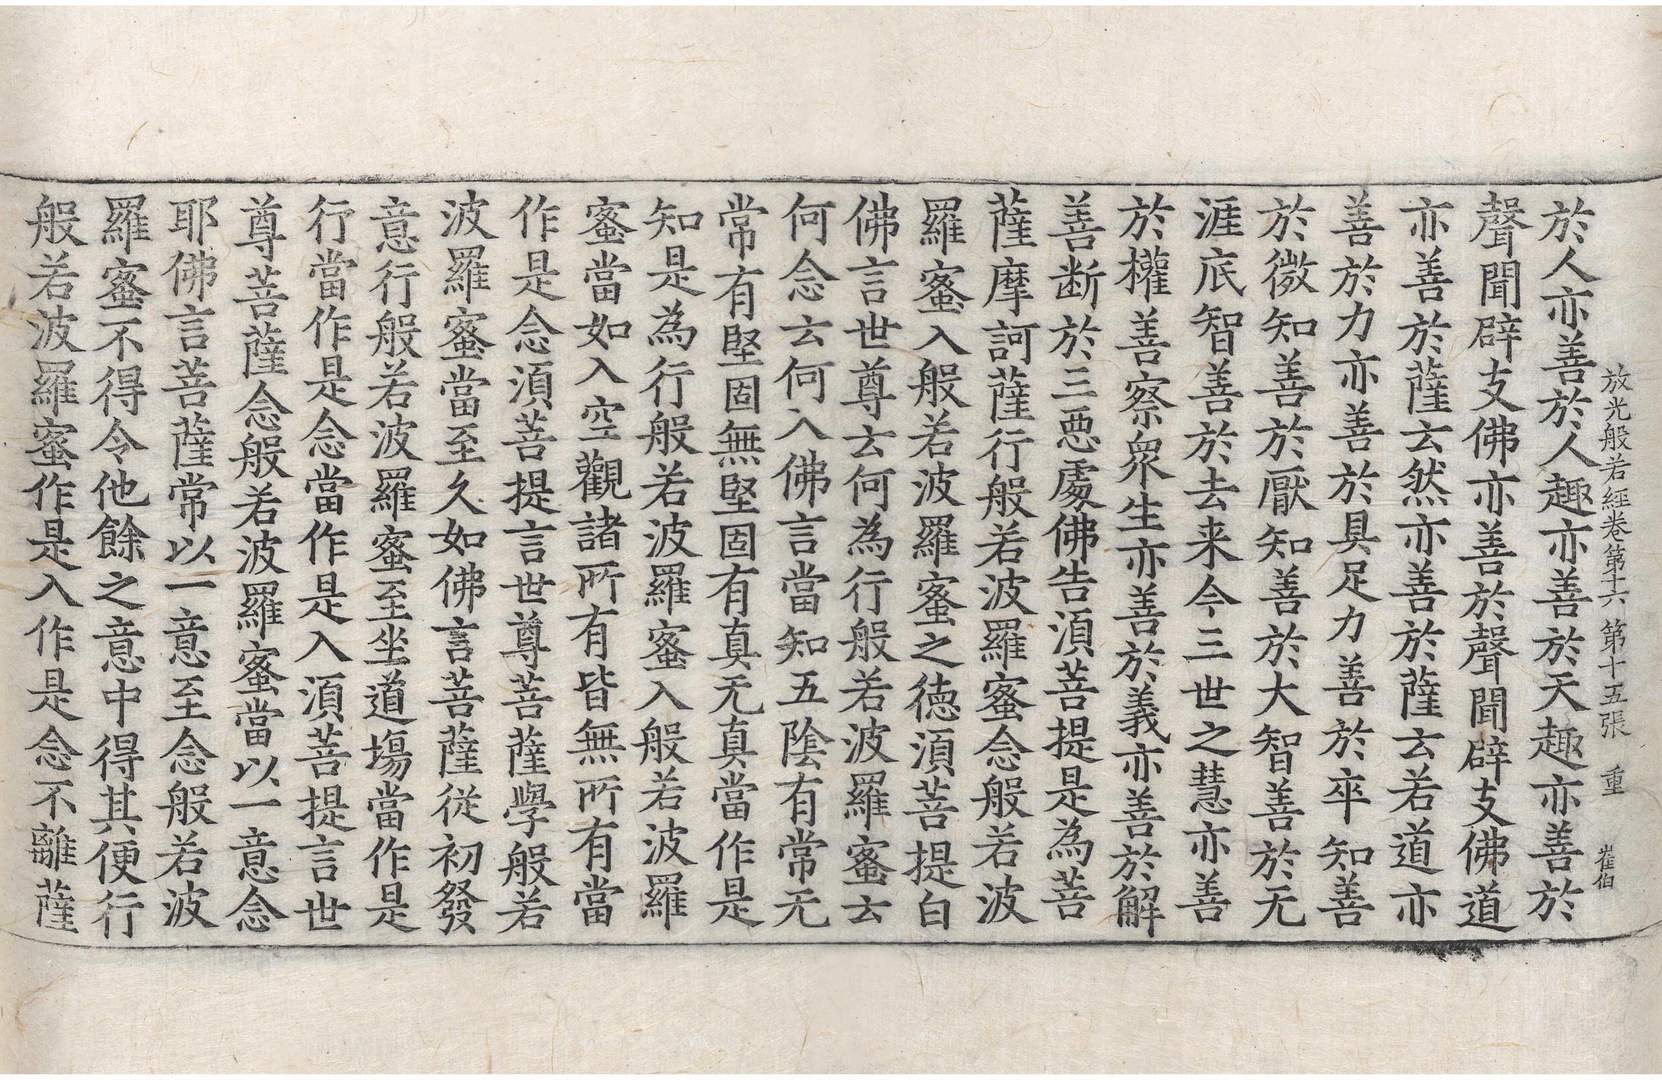 放光般若經卷第十六 第十五張 重 崔伯
於人亦善於人趣亦善於天趣亦善於
聲聞辟支佛亦善於聲聞辟支佛道
亦善於薩云然亦善於薩云若道亦
善於力亦善於具足力善於卒知善
於微知善於厭知善於大智善於无
涯底智善於去来今三世之慧亦善
於權善察衆生亦善於義亦善於解
善断於三惡處佛告湏菩提是為菩
薩摩訶薩行般若波羅蜜念般若波
羅蜜入般若波羅蜜之德湏菩提白
佛言世尊云何為行般若波羅蜜云
何念云何入佛言當知五陰有常无
常有堅固無堅固有真无真當作是
知是為行般若波羅蜜入般若波羅
蜜當如入空觀諸所有皆無所有當
作是念湏菩提言世尊菩薩學般若
波羅蜜當至久如佛言菩薩從初發
意行般若波羅蜜至坐道場當作是
行當作是念當作是入湏菩提言世
尊菩薩念般若波羅蜜當以一意念
耶佛言菩薩常以一意至念般若波
羅蜜不得令他餘之意中得其便行
般若波羅蜜作是入作是念不離薩